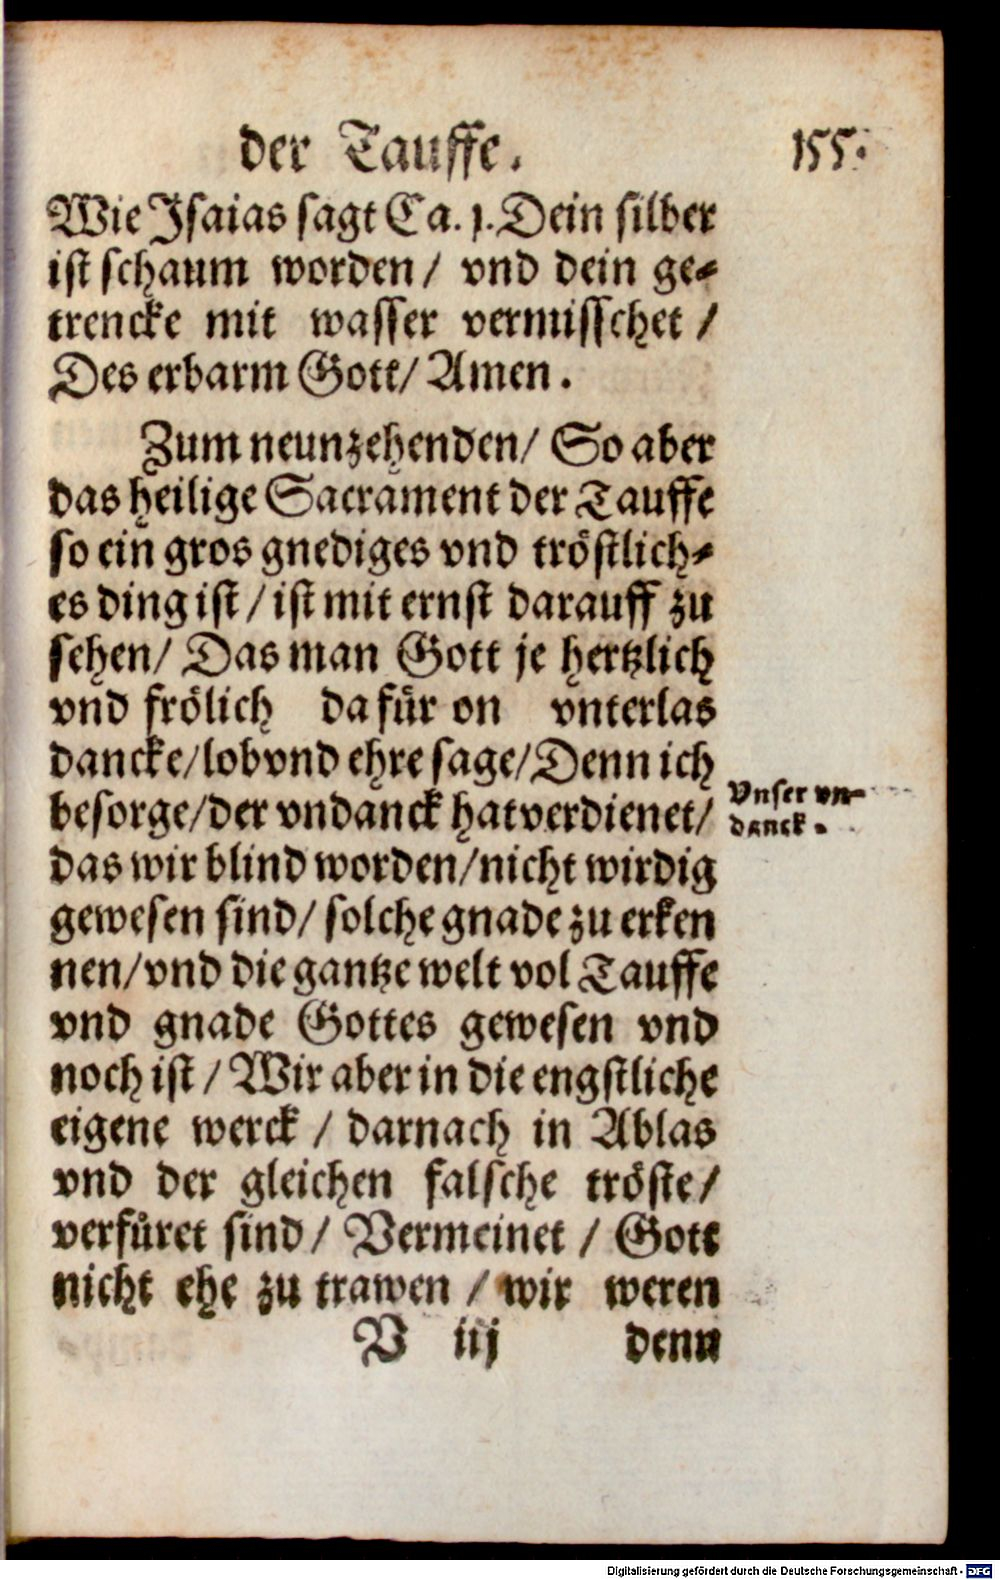 der Tauffe. 155.
Wie Isaias sagt Ca. 1. Dein silber
ist schaum worden/ vnd dein ge-
trencke mit wasser vermisschet /
Des erbarm Gott/ Amen.
Zum neunzehenden/ So aber
das heilige Sacrament der Tauffe
so ein gros gnediges vnd tröstlich-
es ding ist / ist mit ernst darauff zu
sehen/ Das man Gott je hertzlich
vnd frölich da für on vnterlas
dancke/ lob vnd ehre sage/ Denn ich
besorge/ der vndanck hat verdienet/
Vnser vn-
danck.
das wir blind worden/ nicht wirdig
gewesen sind/ solche gnade zu erken
nen/ vnd die gantze welt vol Tauffe
vnd gnade Gottes gewesen vnd
noch ist / Wir aber in die engstliche
eigene werck / darnach in Ablas
vnd der gleichen falsche tröste/
verfüret sind/ Vermeinet / Gott
nicht ehe zu trawen / wir weren
V iij denn
Digitalisierung gefördert durch die Deutsche Forschungsgemeinschaft - DFG